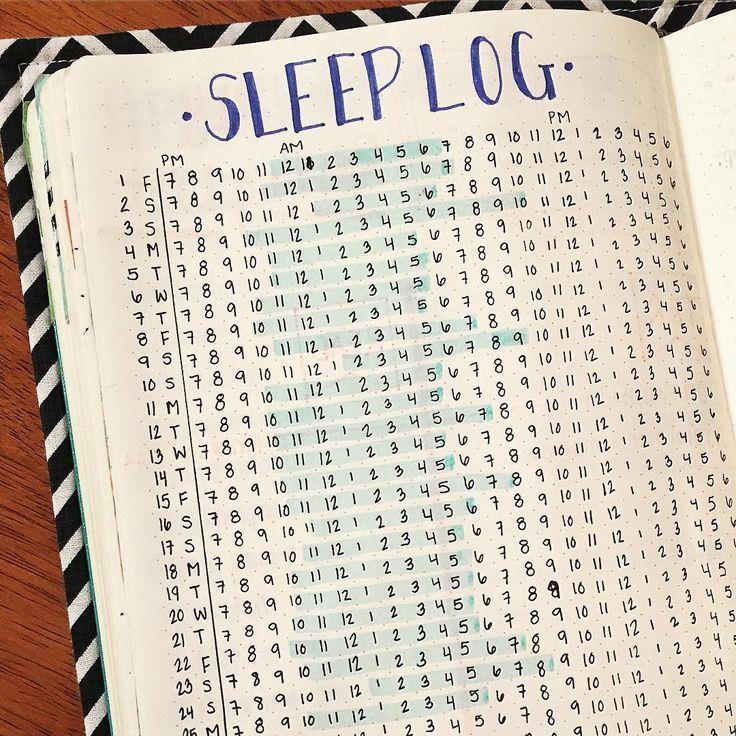 • SLEEP LOG •
PM AM PM
1 F 7 8 9 10 11 12 1 2 3 4 5 6 7 8 9 10 11 12 1 2 3 4 5 6
2 S 7 8 9 10 11 12 1 2 3 4 5 6 7 8 9 10 11 12 1 2 3 4 5 6
3 S 7 8 9 10 11 12 1 2 3 4 5 6 7 8 9 10 11 12 1 2 3 4 5 6
4 M 7 8 9 10 11 12 1 2 3 4 5 6 7 8 9 10 11 12 1 2 3 4 5 6
5 T 7 8 9 10 11 12 1 2 3 4 5 6 7 8 9 10 11 12 1 2 3 4 5 6
6 W 7 8 9 10 11 12 1 2 3 4 5 6 7 8 9 10 11 12 1 2 3 4 5 6
7 T 7 8 9 10 11 12 1 2 3 4 5 6 7 8 9 10 11 12 1 2 3 4 5 6
8 F 7 8 9 10 11 12 1 2 3 4 5 6 7 8 9 10 11 12 1 2 3 4 5 6
9 S 7 8 9 10 11 12 1 2 3 4 5 6 7 8 9 10 11 12 1 2 3 4 5 6
10 S 7 8 9 10 11 12 1 2 3 4 5 6 7 8 9 10 11 12 1 2 3 4 5 6
11 M 7 8 9 10 11 12 1 2 3 4 5 6 7 8 9 10 11 12 1 2 3 4 5 6
12 T 7 8 9 10 11 12 1 2 3 4 5 6 7 8 9 10 11 12 1 2 3 4 5 6
13 W 7 8 9 10 11 12 1 2 3 4 5 6 7 8 9 10 11 12 1 2 3 4 5 6
14 T 7 8 9 10 11 12 1 2 3 4 5 6 7 8 9 10 11 12 1 2 3 4 5 6
15 F 7 8 9 10 11 12 1 2 3 4 5 6 7 8 9 10 11 12 1 2 3 4 5 6
16 S 7 8 9 10 11 12 1 2 3 4 5 6 7 8 9 10 11 12 1 2 3 4 5 6
17 S 7 8 9 10 11 12 1 2 3 4 5 6 7 8 9 10 11 12 1 2 3 4 5 6
18 M 7 8 9 10 11 12 1 2 3 4 5 6 7 8 9 10 11 12 1 2 3 4 5 6
19 T 7 8 9 10 11 12 1 2 3 4 5 6 7 8 9 10 11 12 1 2 3 4 5 6
20 W 7 8 9 10 11 12 1 2 3 4 5 6 7 8 9 10 11 12 1 2 3 4 5
21 T 7 8 9 10 11 12 1 2 3 4 5 6 7 8 9 10 11 12 1 2 3 4 5
22 F 7 8 9 10 11 12 1 2 3 4 5 6 7 8 9 10 11 12 1 2 3 4 5
23 S 7 8 9 10 11 12 1 2 3 4 5 6 7 8 9 10 11 12 1 2 3 4 5
24 S 7 8 9 10 11 12 1 2 3 4 5 6 7 8 9 10 11 12 1 2 3 4 5
25 M 7 8 9 10 11 12 1 2 3 4 5 6 7 8 9 10 11 12 1 2 3 4